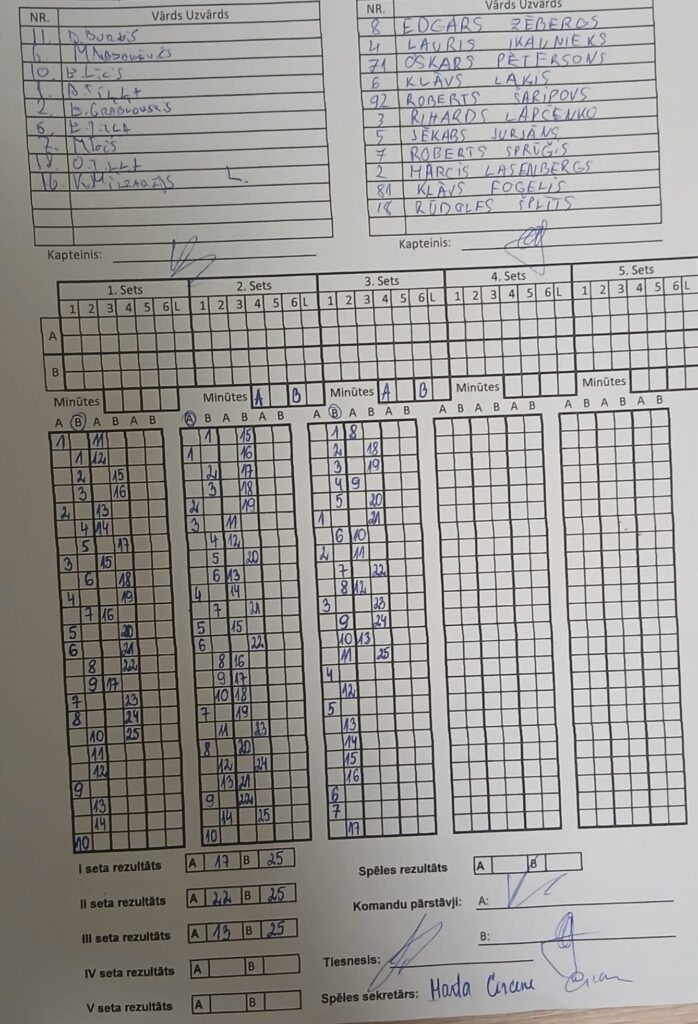 NR. Vārds Uzvārds
11. D. Burkis
6.
10. B. Līcis
1.
2. B. Grablovskis
6. E. Jilla
7.
O. Jilla
16. L.
Kapteinis:
NR. Vārds Uzvārds
8 EDGARS ZĒBERGS
4 LAURIS IKAUNIEKS
71 OSKARS PĒTERSONS
6 KLĀVS LAĶIS
92 ROBERTS ŠARIPOVS
3 RIHARDS LAPČENKO
5 JĒKABS JURJĀNS
7 ROBERTS SPRŪĢIS
2 MĀRCIS LASENBERGS
81 KLĀVS FOGELIS
18 RŪDOLFS ŠPLĪTS
Kapteinis:
1. Sets 2. Sets 3. Sets 4. Sets 5. Sets
1 2 3 4 5 6 L 1 2 3 4 5 6 L 1 2 3 4 5 6 L 1 2 3 4 5 6 L 1 2 3 4 5 6 L
A
B
Minūtes Minūtes A B Minūtes A B Minūtes Minūtes
A B A B A B A B A B A B A B A B A B A B A B A B A B A B A B
1 11 1 15 1 8
1 12 1 16 2 18
2 15 2 17 3 19
3 16 3 18 4 9
2 13 2 19 5 20
4 14 3 11 1 21
5 17 4 12 6 10
3 15 5 20 2 11
6 18 6 13 7 22
4 19 4 14 8 12
7 16 7 21 3 23
5 20 5 15 9 24
6 21 6 22 10 13
8 22 8 16 11 25
9 17 9 17 4
7 23 10 18 12
8 24 7 19 5
10 25 11 23 13
11 8 20 14
12 12 24 15
9 13 21 16
13 9 22 6
14 14 25 7
10 10 17
I seta rezultāts A 17 B 25
II seta rezultāts A 22 B 25
III seta rezultāts A 13 B 25
IV seta rezultāts A B
V seta rezultāts A B
Spēles rezultāts A B
Komandu pārstāvji: A:
B:
Tiesnesis:
Spēles sekretārs: Marta Circene